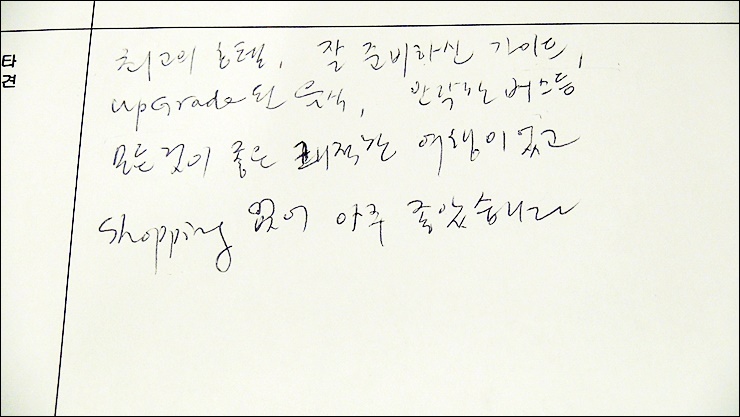 타
견
최고의 호텔, 잘 준비하신 가이드,
upgrade된 음식, 안락한 버스등
모든것이 좋은 쾌적한 여행이었고
shopping 없어 아주 좋았습니다